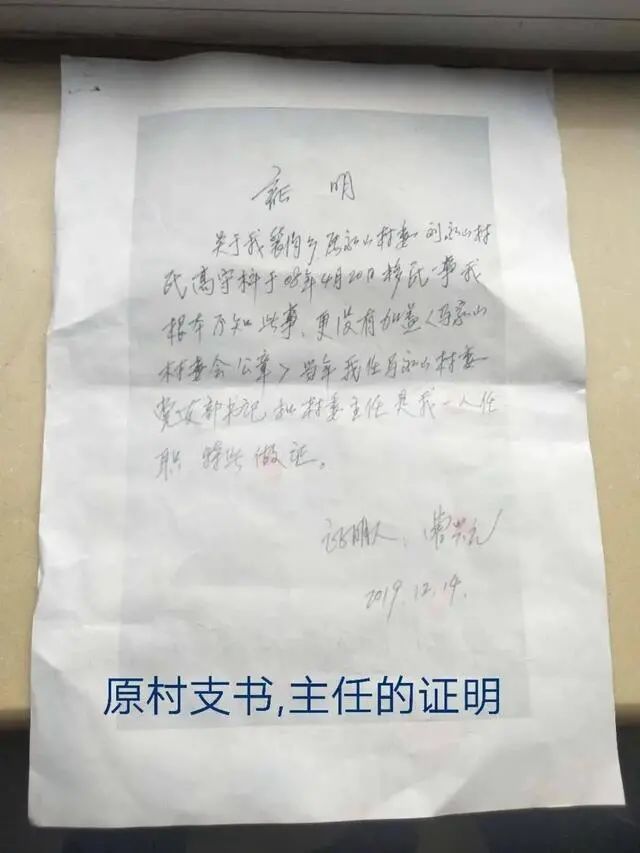 证 明
关于我 乡 山村委 刘 山村
民高宇科于08年4月20日移民一事我
根本不知此事、更没有加盖〈 山
村委会公章〉当年我任 山村委
党支部书记和村委主任是我一人任
职 特此做证。
证明人:
2019.12.14.
原村支书,主任的证明